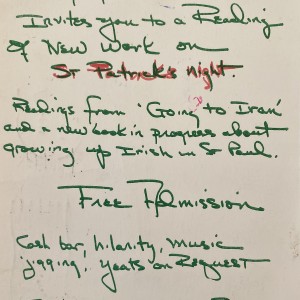 Invites you to a Reading
of New Work on
St Patrick's night.
Readings from 'Going to Iran'
and a new book in progress about
growing up Irish in St Paul.
Free Admission
Cash bar, hilarity, music
jigging, Yeats on Request